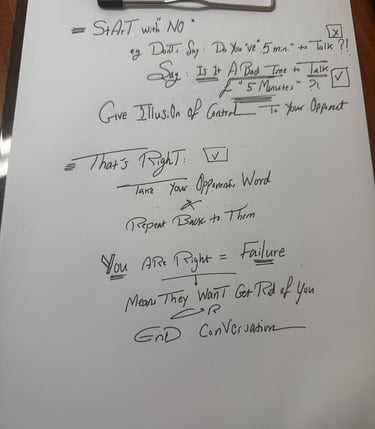 = StArT with "NO"
eg. Don't Say: Do You've "5 min." to Talk ?! ☒
Say: Is It A Bad Time to Talk
"5 Minutes" ?!. ☑
Give Illusion Of Control To Your Opponent
= That's Right: ☑
Take Your Opponents Word
&
Repeat Back to Them
You ARe Right = Failure
Means They WanT Get Rid of You
OR
EnD Conversation